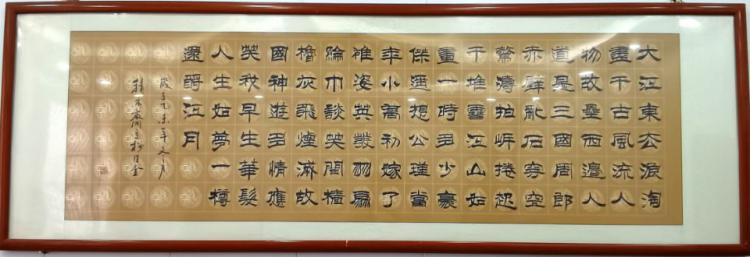 大江東去浪淘
盡千古風流人
物故壘西邊人
道是三國周郎
赤壁亂石穿空
驚濤拍岸捲起
千堆雪江山如
畫一時多少豪
傑遙想公瑾當
年小喬初嫁了
雄姿英發羽扇
綸巾談笑間檣
櫓灰飛煙滅故
國神遊多情應
笑我早生華髮
人生如夢一樽
還酹江月